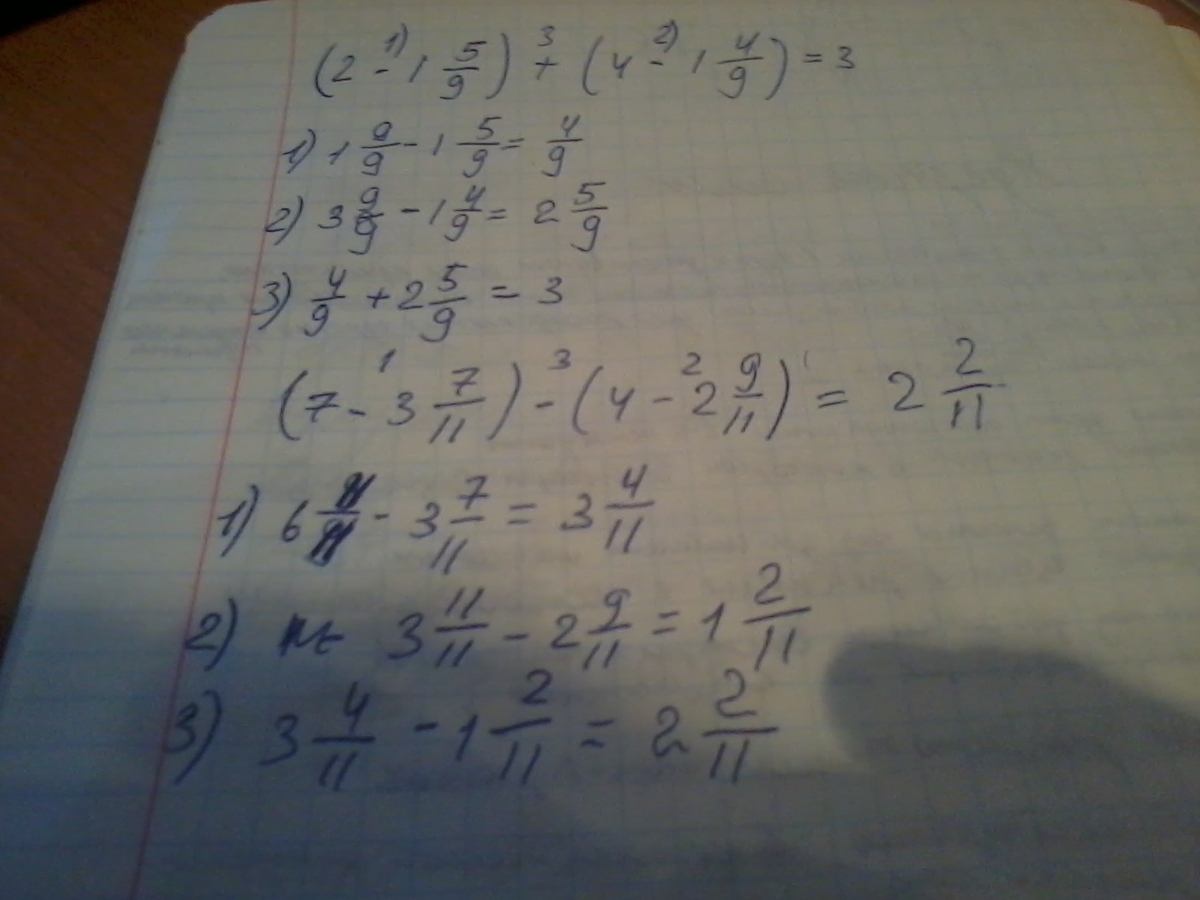 (2 - 1 5/9) + (4 - 1 4/9) = 3
1) 1 9/9 - 1 5/9 = 4/9
2) 3 9/9 - 1 4/9 = 2 5/9
3) 4/9 + 2 5/9 = 3
(7 - 3 7/11) - (4 - 2 9/11) = 2 2/11
1) 6 11/11 - 3 7/11 = 3 4/11
2) 3 11/11 - 2 9/11 = 1 2/11
3) 3 4/11 - 1 2/11 = 2 2/11